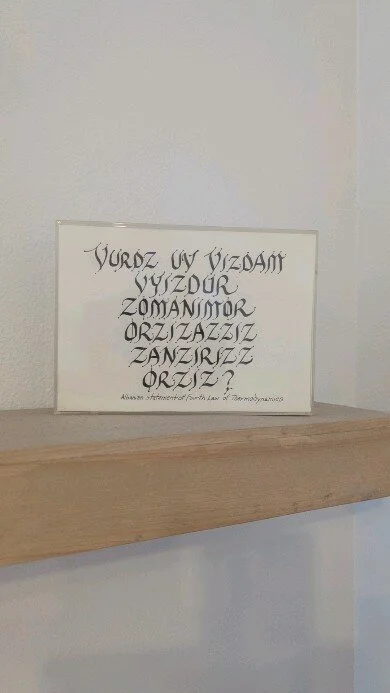 VURDZ UV VIZDAM
VYIZDUR
ZOMANIMOR
ORZIZAZZIZ
ZANZIRIZZ
ORZIZ?
Albanian Statement of Fourth Law of Thermodynamics